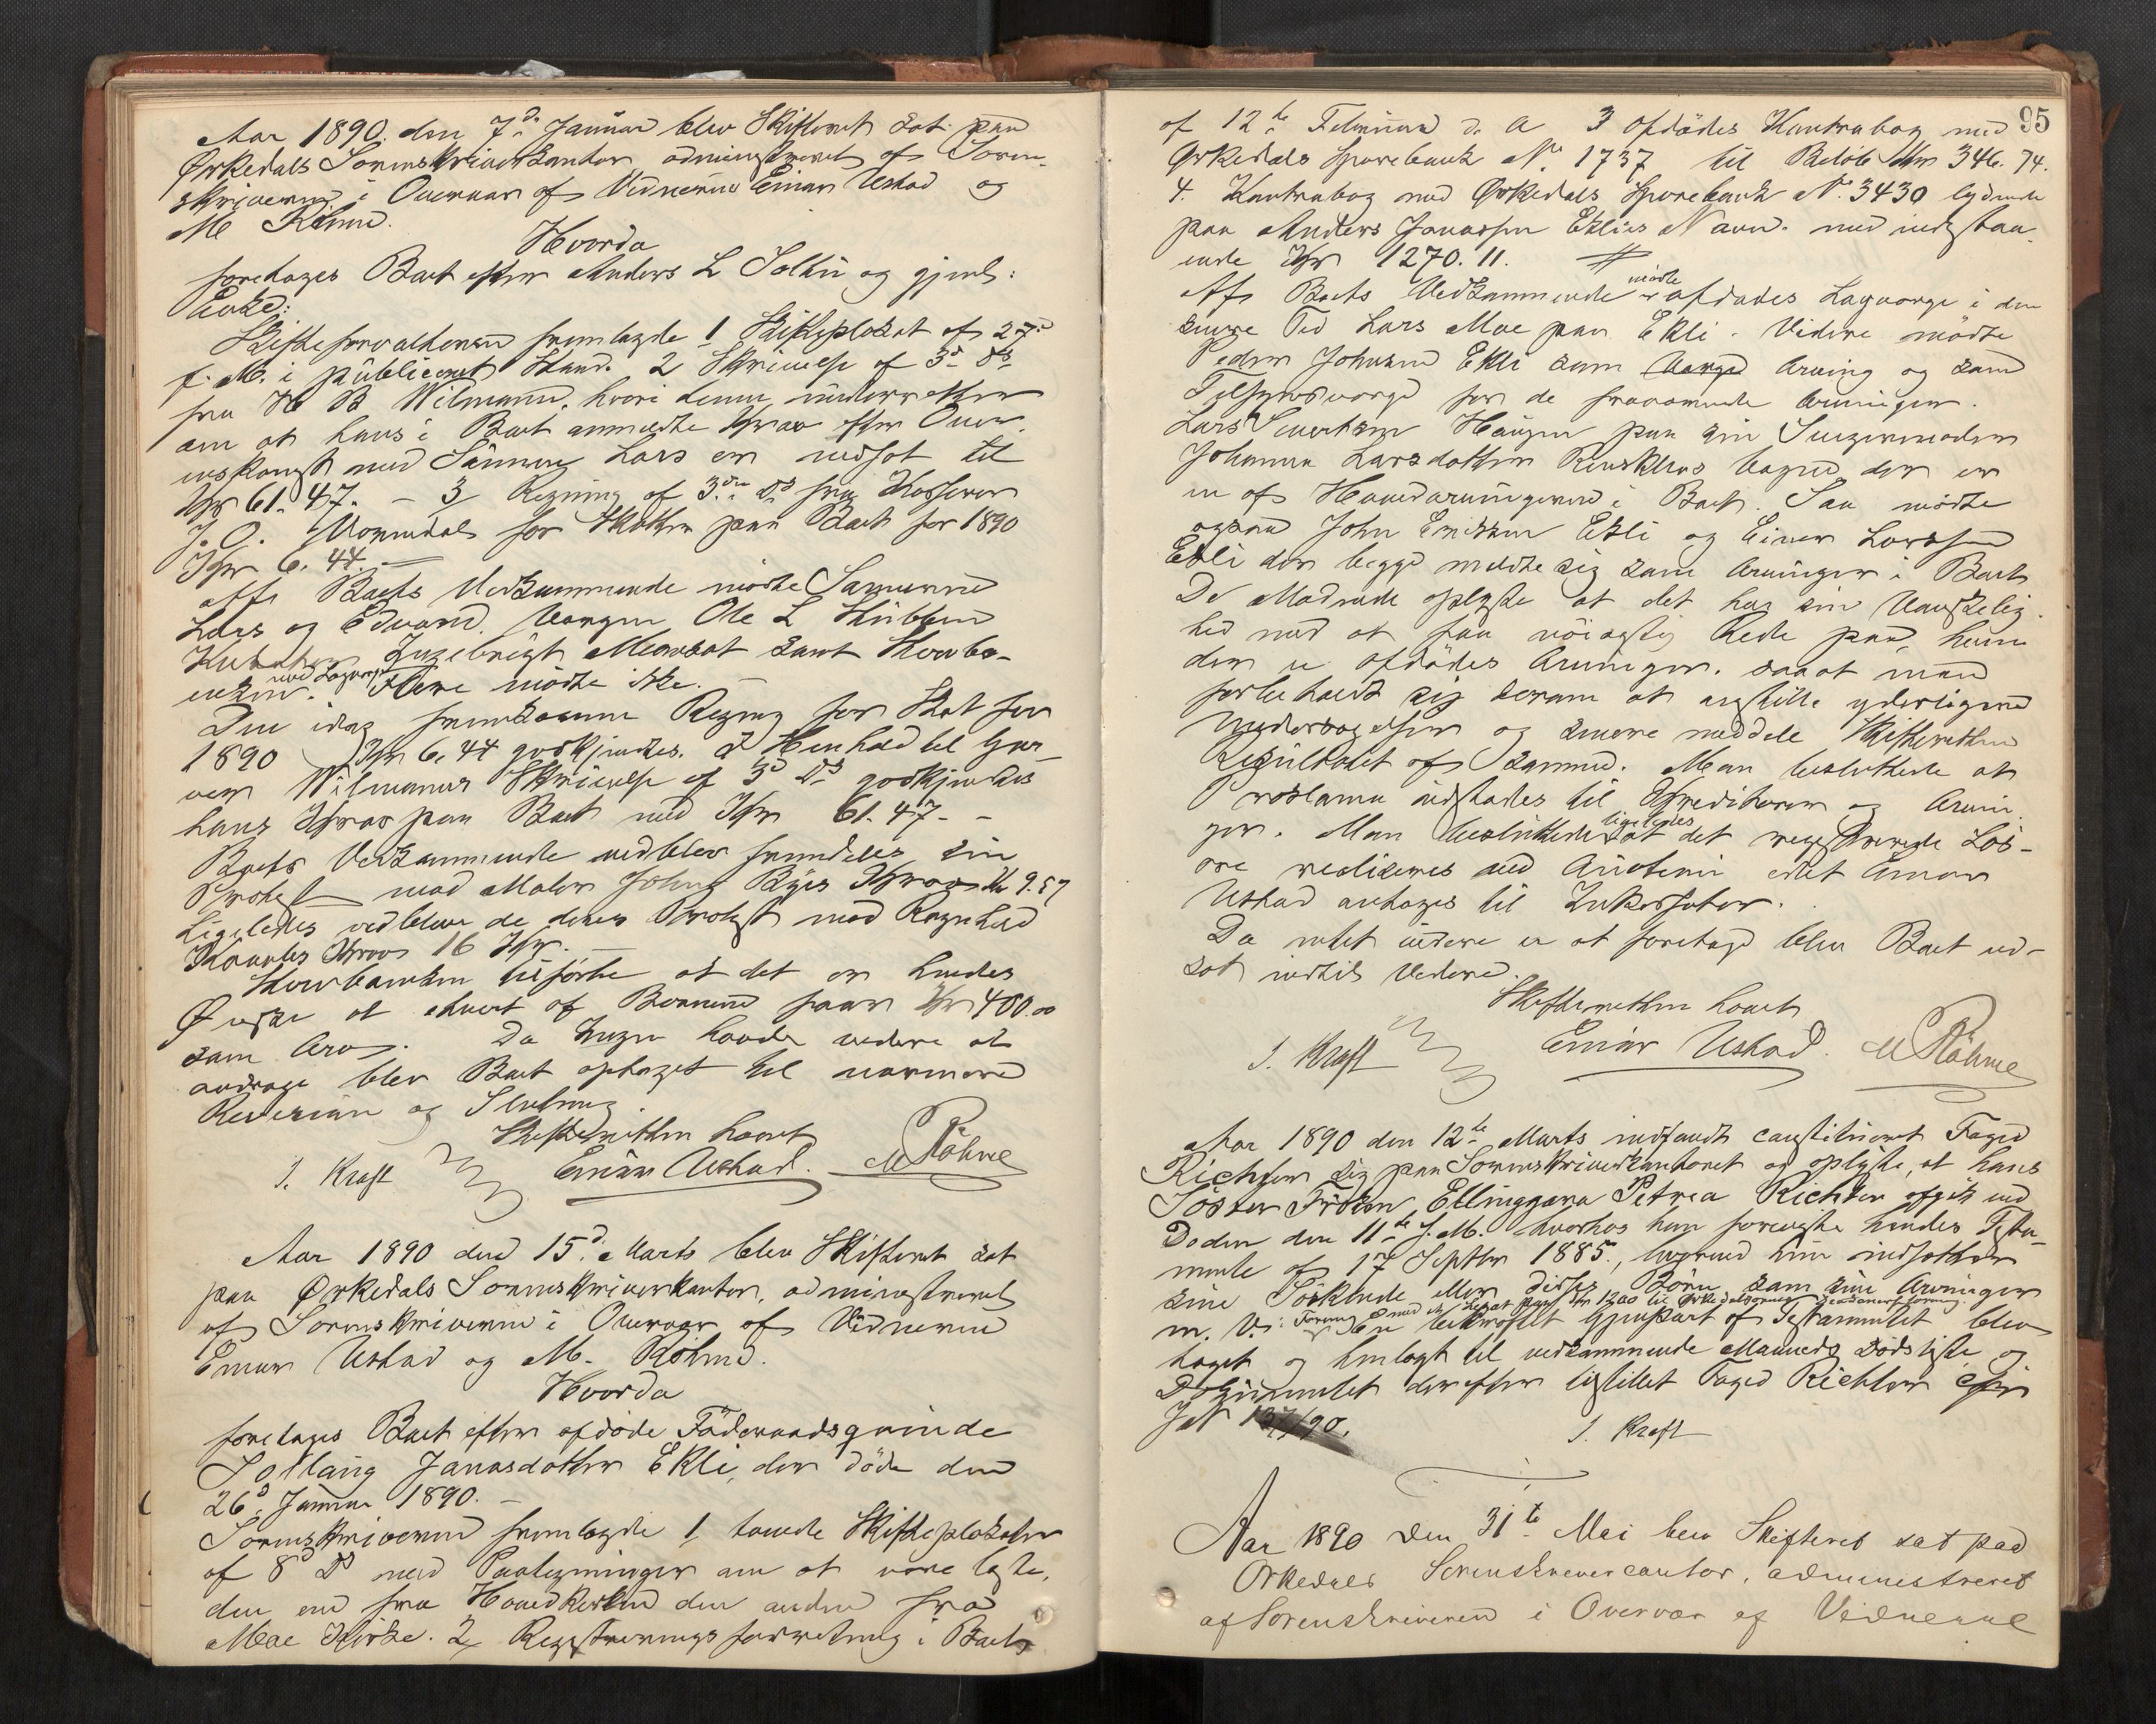 Aar 1890. den 7de Januar blev Skifteret sat paa
Ørkedals Sorenskriverkontor, administreret af Soren-
skriveren i Overvær af Vidnerne Einar Ustad og
M Röhme.
Hvorda
foretages Boet efter Anders L Solli og gjenl:
Enke:
Skifteforvalteren fremlagde 1 Skifteplakat af 27de
f. M. i publiceret Stand. 2 Skrivelse af 3d ds
fra H B Wilmann, hvori denne underretter
om at hans i Boet anmeldte Krav efter Over-
enskomst med Sönnen Lars er nedsat til
Kr 61.47. – 3 Regning af 3die ds fra Kasserer
J. O. Vormdal for Skatter paa Boet for 1890
Kr 6.44. –
Af Boets Vedkommende mødte Sønnerne
Lars og Edvard. Vergen Ole L Stubben
Kurator Ingebrigt Mearsat samt Skovbo-
enken med Lagverge. Flere mödte ikke. –
Den idag fremkomne Regning for Skat for
1890 Kr 6.44 godkjendtes. I Henhold til Gar-
ver Wilmanns Skrivelse af 3d ds godkjendtes
hans Krav paa Boet med Kr 61.47. –
Boets Vedkommende vedblev fremdeles sin
Protest mod Maler Johns Byes Krav Kr 9.57
Ligeledes vedblev de deres Protest mod Ragnhild
Krav 16 Kr. –
tilførte at det er hendes
Ønske at hvert af Bornene faar Kr 400.00
som Arv. Da Ingen havde videre at
andrage blev Boet optaget til nærmere
Revision og Slutning.
Skifteretten hævet
J. Kraft Einar Ustad. M Röhme
Aar 1890 den 15de Marts blev Skifteret sat
paa Ørkedals Sorenskriverkontor, administreret
af Sorenskriveren i Overvær af Vidnerne
Einar Ustad og M. Röhme.
Hvorda
foretages Boet efter afdöde Föderaadsqvinde
Sollaug Janasdatter Ekli, der döde den
26d Januar 1890. –
Sorenskriveren fremlagde 1, tvende Skifteplakater
af 8d ds med Paategninger om at være læste,
den ene fra Hovedkirken den anden fra
Moe Kirke. 2, Registreringsforretning i Boet
95
af 12te Februar d. A 3 Afdödes Kontrabog med
Ørkedals Sparebank No 1737 til Belöb Kr 346.74.
4. Kontrabog med Ørkedals Sparebank No. 3430 lydende
paa Anders Janassen Eklis Navn. med indestaa-
ende Kr 1270.11.
Af Boets Vedkommende mödte afdödes Lagverge i den
senere Tid Lars Moe paa Ekli. Videre mödte
Peder Johnsen Ekli som Verge Arving og som
Tilsynsverge for de fraværende Arvinger.
Lars Sivertsen Haugen paa sin Svigermoder
Johanna Larsdatter Vegne, der er
en af Hovedarvingerne i Boet. Saa mödte
ogsaa John Eriksen Ekli og Einer Larssen
Ekli der begge meldte sig som Arvinger i Boet
De Mödende oplyste at det har sin Vanskelig-
hed med at faa nöiagtig Rede paa, hvem
der er afdödes Arvinger, saaat man
forbeholdt sig derom at anstille yderligere
Undersøgelser og senere meddele Skifteretten
Resultatet af samme. Man besluttede at
Proklama udstædes til Kreditorer og Arvin-
ger. Man besluttede ligeledes at det registrerede Lös-
öre realiseres ved Auction idet Einar
Ustad antages til Inkassator.
Da intet videre er at foretage blev Boet ud-
sat indtil Videre.
Skifteretten hævet
J. Kraft Einar Ustad. M Röhme
Aar 1890 den 12te Marts indfandt constitueret Foged
Richter sig paa Sorenskriverkontoret og oplyste, at hans
Söster Fröken Ellinggara Petrea Richter afgik ved
Döden den 11te d. M. hvorhos han foreviste hendes Testa-
mente af 17 Septbr 1885, hvorved hun indsætter
sine Söskende eller disses Börn som sine Arvinger
m. V. En bekræftet Gjenpart af Testamentet blev
taget og henlagt til vedkommende Maaneds Dödsliste og
Dokumentet derefter tilstillet Foged Richter cfr
J No 137/90.
J. Kraft
Aar 1890 den 31te Mai blev Skifteret sat paa
Orkedals Sorenskrivercontor, administreret
af Sorenskriveren i Overvær af Vidnerne